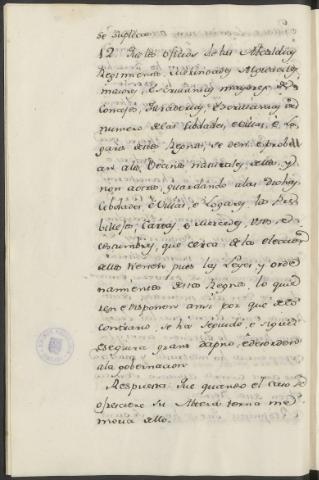 se suplica
12 Que los oficios de las Alcaldias
Regimientos,
maiores, e Escrivanias mayores de
Concejo, Juraderias, Escrivanias del
numero de las Cibdades, e Villas, e Lo
gares destos Regnos, se den e probe
an a los Vecinos naturales dellos, y
non a otros, guardando a las Dichas
Cibdades e Villas, e Logares los Pri
bilejos, Cartas, e Mercedes, Usos e
costumbres, que cerca de la eleccion
dellos tienen, pues las Leyes, y orde
namientos destos Regnos, lo quie
ren e Disponen ansi por que de lo
contrario, se ha seguido, e sigue
e seguira grand dapno, e desorden
a la gobernacion
Respuesta. Que quando el caso se
ofresciere Su Alteza terna me
moria dello.